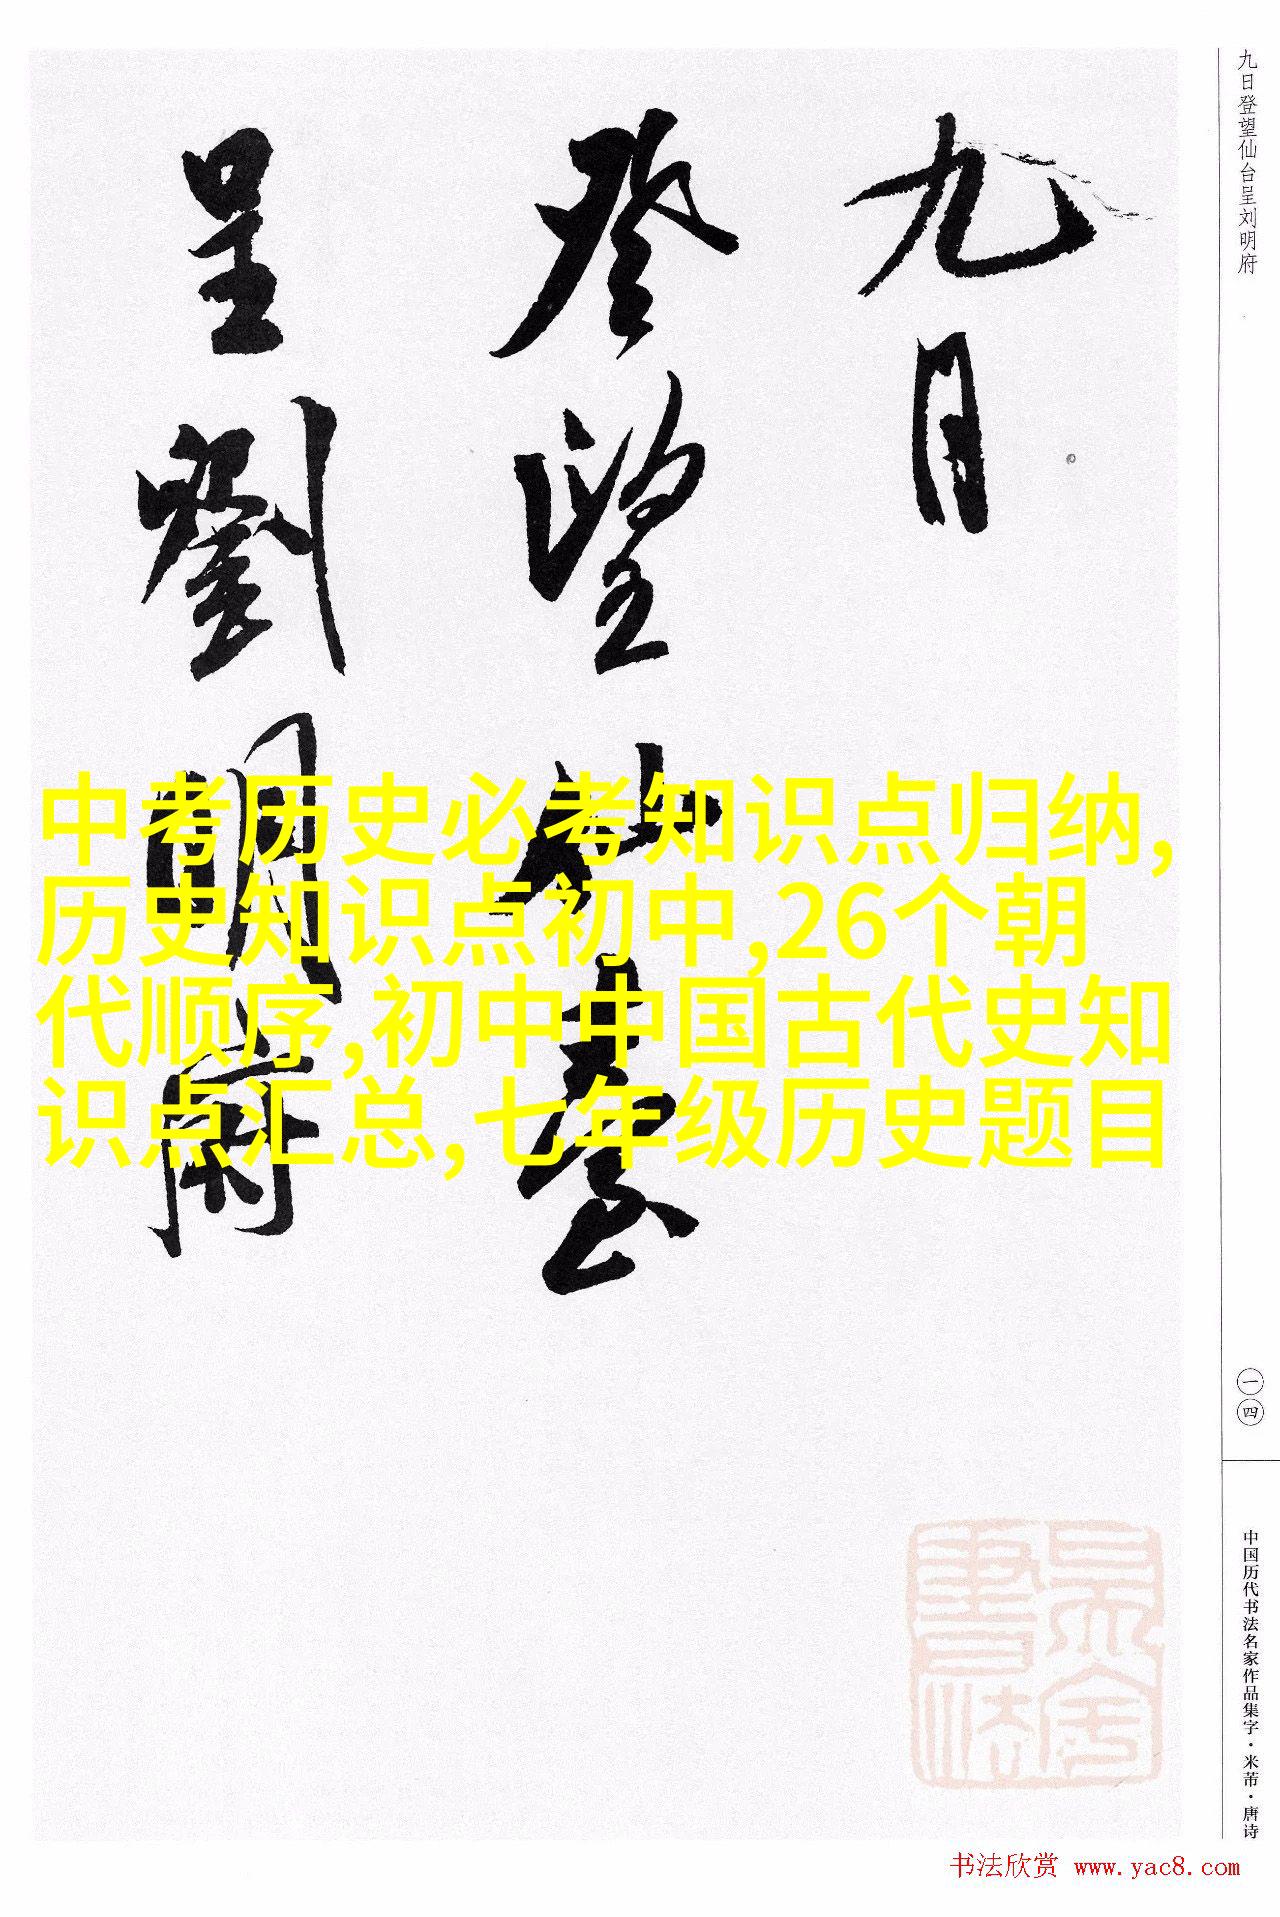 九日登望仙台呈刘明府
九日
登望仙臺
呈劉明府
中考历史必考知识点归纳,
历史知识点初中,26个朝
代顺序,初中中国古代史知
识点汇总,七年级历史题目
一四
中国历代书法名家作品集字·米芾·唐诗
书法欣赏 www.yac8.com